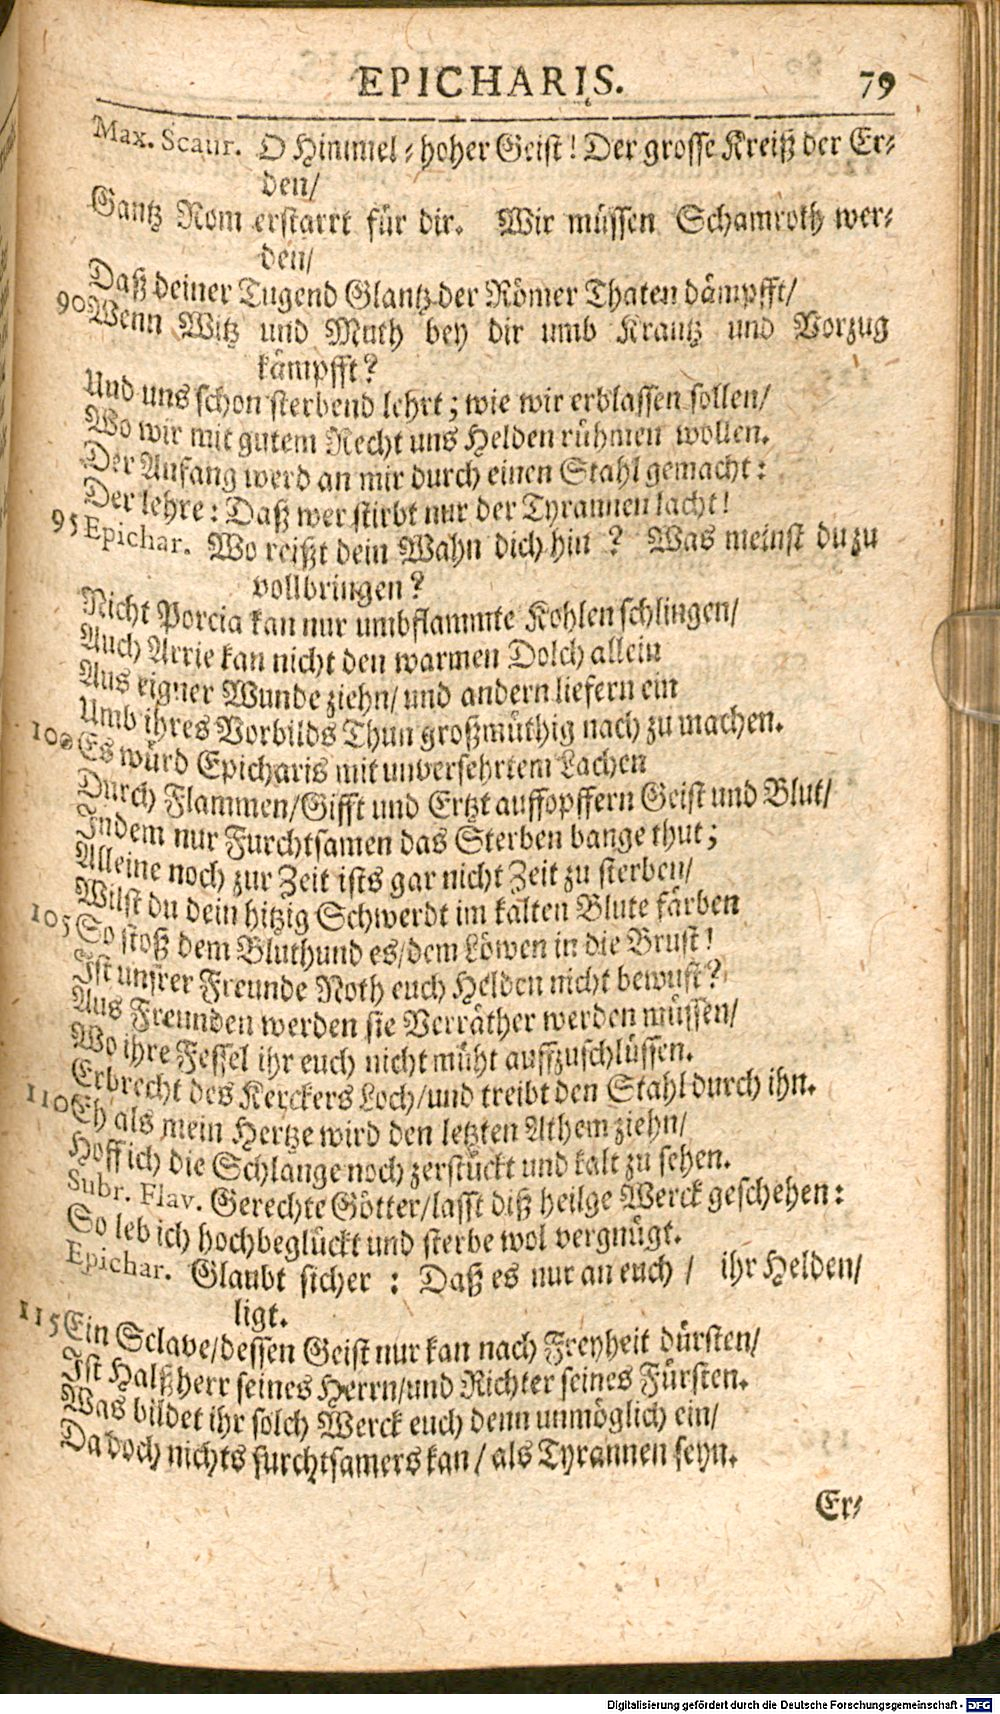 EPICHARIS. 79
Max. Scaur. O Himmel-hoher Geist! Der grosse Kreiß der Er-
den/
Gantz Rom erstarrt für dir. Wir müssen Schamroth wer-
den/
Daß deiner Tugend Glantz der Römer Thaten dämpfft/
90 Wenn Witz und Muth bey dir umb Krantz und Vorzug
kämpfft?
Und uns schon sterbend lehrt; wie wir erblassen sollen/
Wo wir mit gutem Recht uns Helden rühmen wollen.
Der Anfang werd an mir durch einen Stahl gemacht:
Der lehre: Daß wer stirbt nur der Tyrannen lacht!
95 Epichar. Wo reißt dein Wahn dich hin? Was meinst du zu
vollbringen?
Nicht Porcia kan nur umbflammte Kohlen schlingen/
Auch Arrie kan nicht den warmen Dolch allein
Aus eigner Wunde ziehn/ und andern liefern ein
Umb ihres Vorbilds Thun großmüthig nach zu machen.
100 Es würd Epicharis mit unversehrtem Lachen
Durch Flammen/ Gifft und Ertzt auffopffern Geist und Blut/
Indem nur Furchtsamen das Sterben bange thut;
Alleine noch zur Zeit ists gar nicht Zeit zu sterben/
Wilst du dein hitzig Schwerdt im kalten Blute färben
105 So stoß dem Bluthund es/ dem Löwen in die Brust!
Ist unsrer Freunde Noth euch Helden nicht bewust?
Aus Freunden werden sie Verräther werden müssen/
Wo ihre Fessel ihr euch nicht müht auffzuschlüssen.
Erbrecht des Kerckers Loch/ und treibt den Stahl durch ihn.
110 Eh als mein Hertze wird den letzten Athem ziehn/
Hoff ich die Schlange noch zerstückt und kalt zu sehen.
Subr. Flav. Gerechte Götter/ lasst diß heilge Werck geschehen:
So leb ich hochbeglückt und sterbe wol vergnügt.
Epichar. Glaubt sicher: Daß es nur an euch/ ihr Helden/
ligt.
115 Ein Sclave/ dessen Geist nur kan nach Freyheit dürsten/
Ist Halßherr seines Herrn/ und Richter seines Fürsten.
Was bildet ihr solch Werck euch denn unmöglich ein/
Da doch nichts furchtsamers kan/ als Tyrannen seyn.
Er-
Digitalisierung gefördert durch die Deutsche Forschungsgemeinschaft - DFG